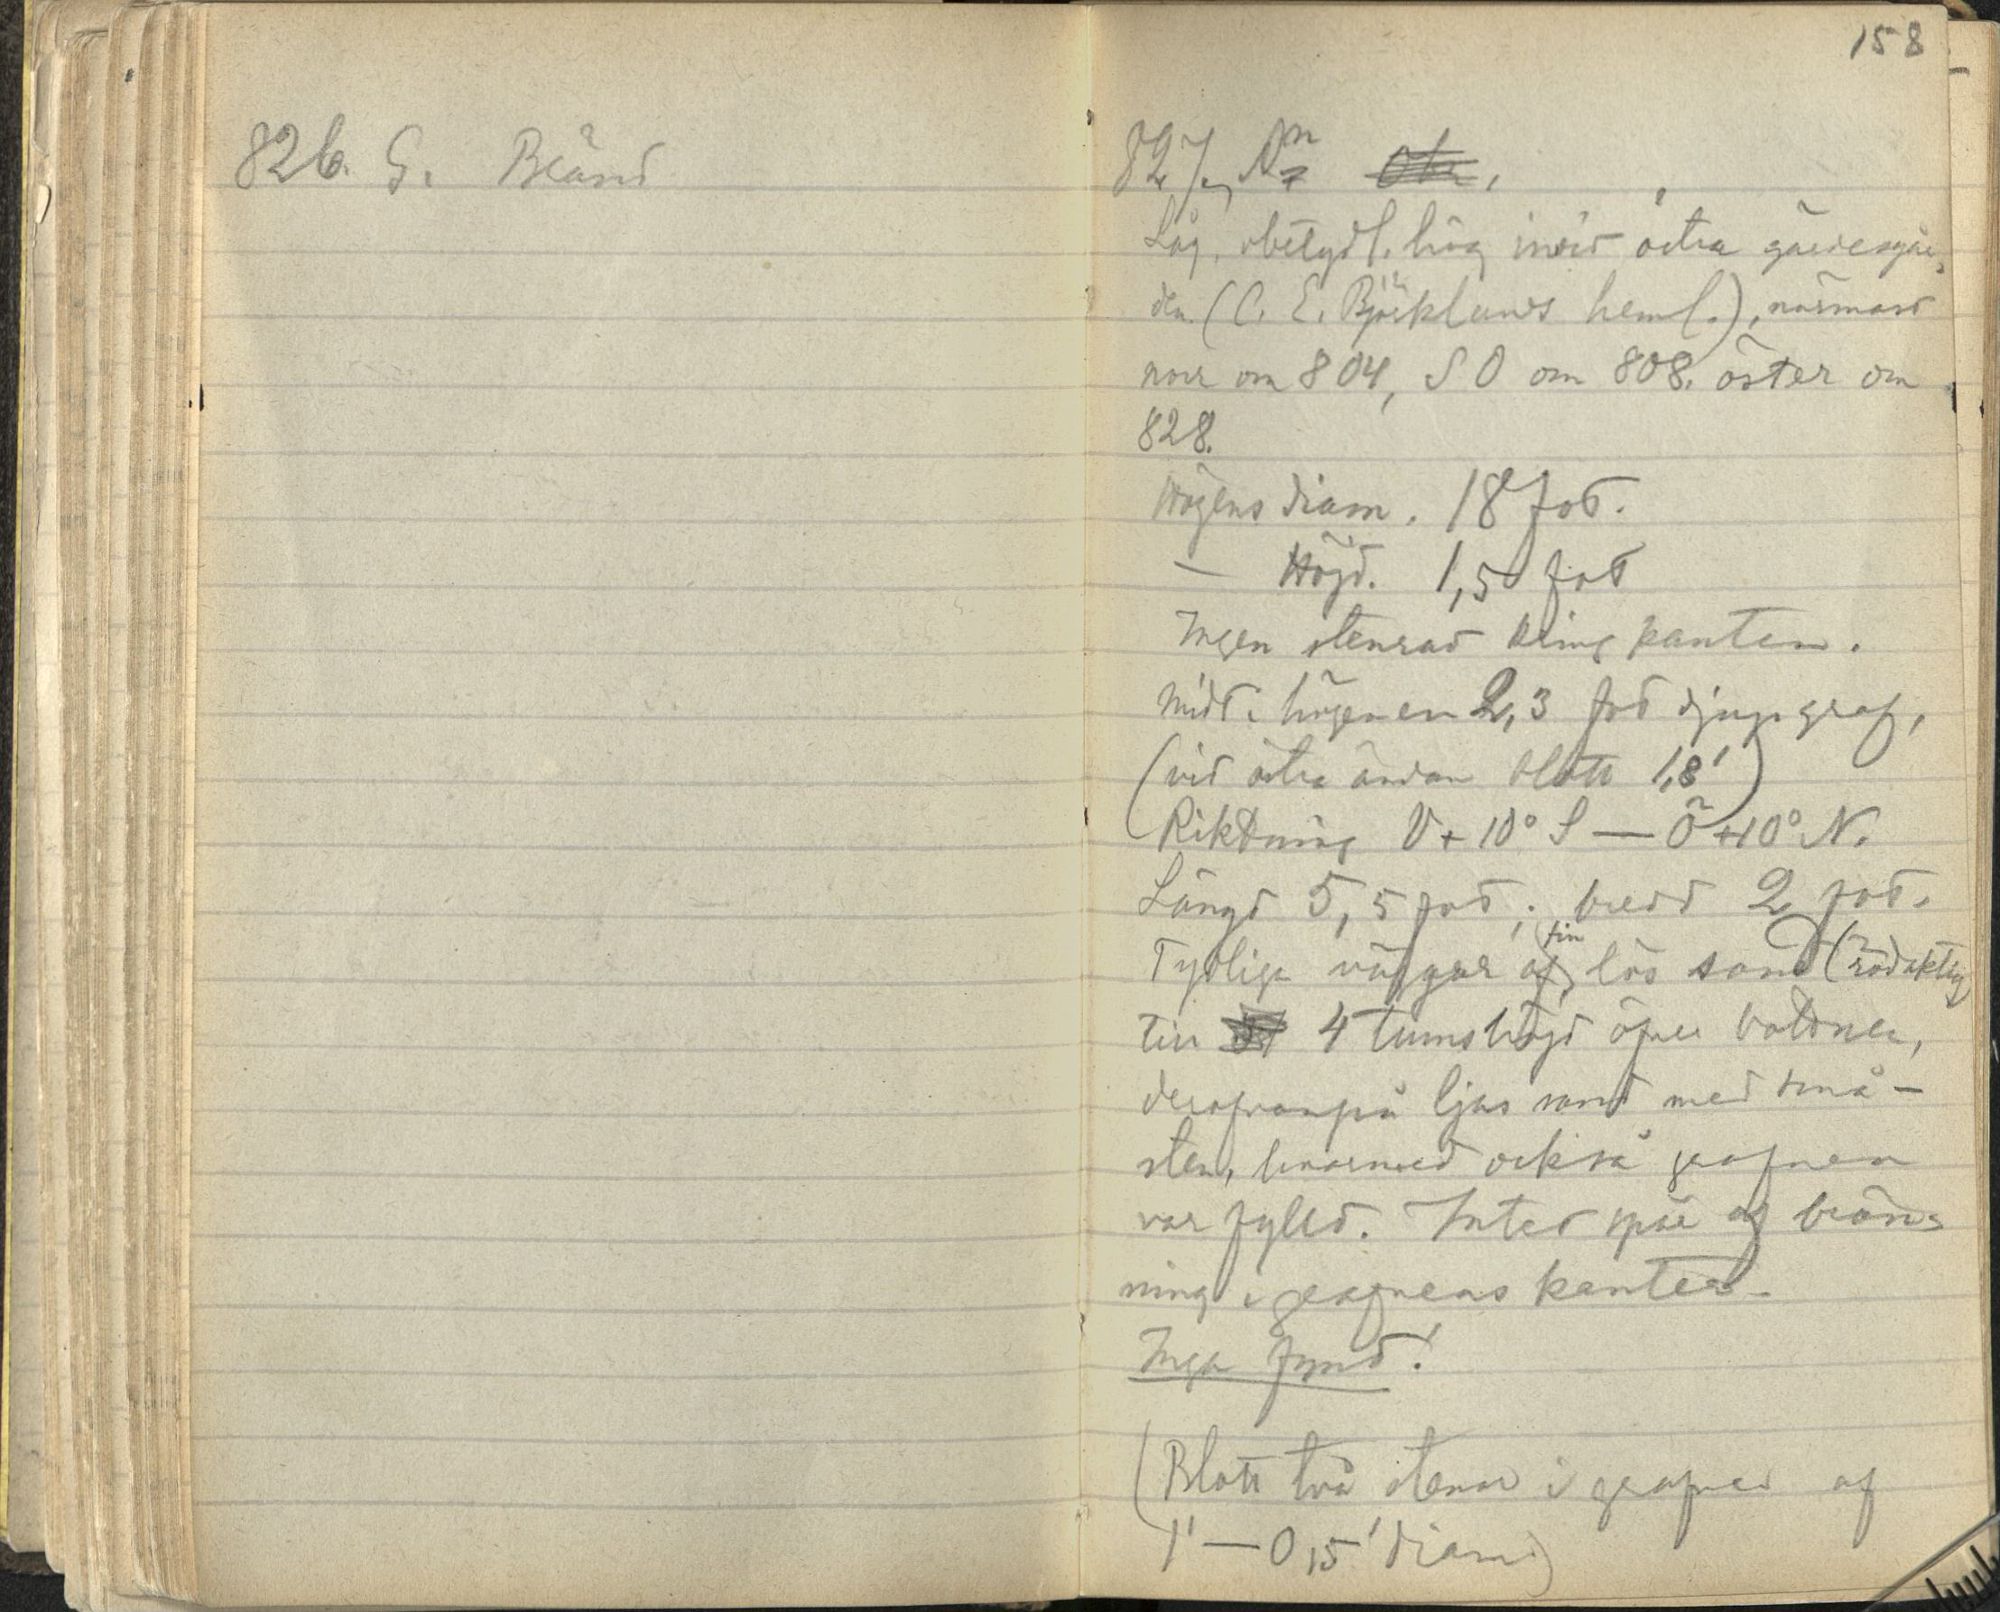 826. G. Bränd
158
827,
Låg, obetydl. hög invid östra gärdesgår-
den (C. E. Björklunds heml.), närmast
norr om 804, SO om 808, öster om
828.
Högens diam. 18 fot.
— Höjd. 1,5 fot
Ingen stenrad kring kanten.
Midt i högen en 2,3 fot djup graf,
(vid östra ändan blott 1,8')
Riktning V+10° S — Ö+10° N.
Längd 5,5 fot; bredd 2 fot.
Tydliga väggar af fin lös sand (rödaktig)
till 4 tums höjd öfver bottnen,
derofvanpå ljus sand med små-
sten, hvarmed också grafven
var fylld. Intet spår af brän-
ning i grafvens kanter.
Inga fynd!
(Blott två stenar i grafven af
1' — 0,5' diam.)